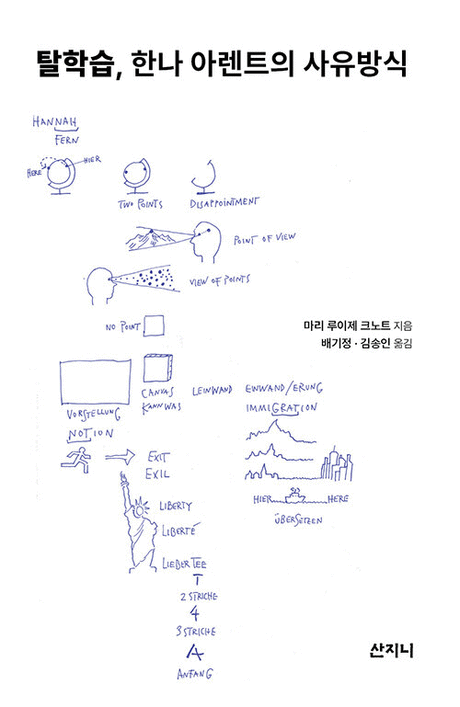 탈학습, 한나 아렌트의 사유방식
HANNAH
FERN
HERE
HIER
TWO POINTS
DISAPPOINTMENT
POINT OF VIEW
VIEW OF POINTS
NO POINT
마리 루이제 크노트 지음
배기정 · 김송인 옮김
CANVAS
KANNWAS
LEINWAND
EINWAND/ERUNG
IMMIGRATION
VORSTELLUNG
NOTION
EXIT
EXIL
LIBERTY
LIBERTÉ
LIEBER TEE
HIER
HERE
ÜBERSETZEN
T
2 STRICHE
4
3 STRICHE
A
ANFANG
산지니